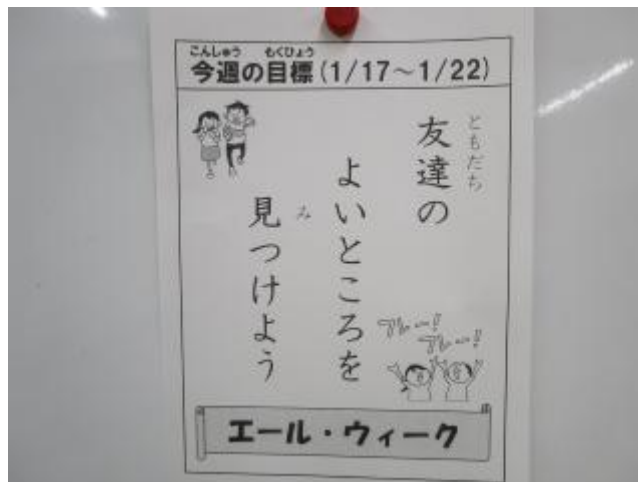 こんしゅう もくひょう
今週の目標(1/17～1/22)
ともだち
友達の
よいところを
み
見つけよう
フレー!
フレー!
エール・ウィーク